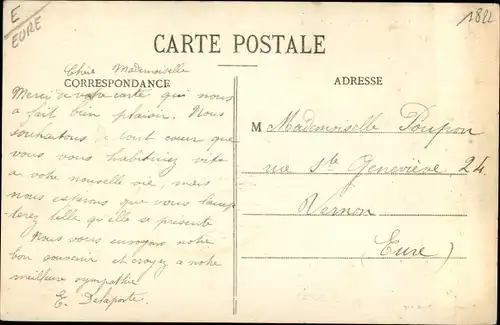 E
EURE
1822
CARTE POSTALE
Chère Mademoiselle
CORRESPONDANCE
Merci de votre carte qui nous
a fait bien plaisir. Nous
souhaitons de tout cœur que
vous vous habituiez vite
à votre nouvelle vie, mais
nous espérons que vous l'accep
terez telle qu'elle se présente
Nous vous envoyons notre
bon souvenir et croyez à notre
meilleure sympathie
E. Delaporte
ADRESSE
M Mademoiselle Poupion
rue Ste Geneviève 24.
Vernon
(Eure)